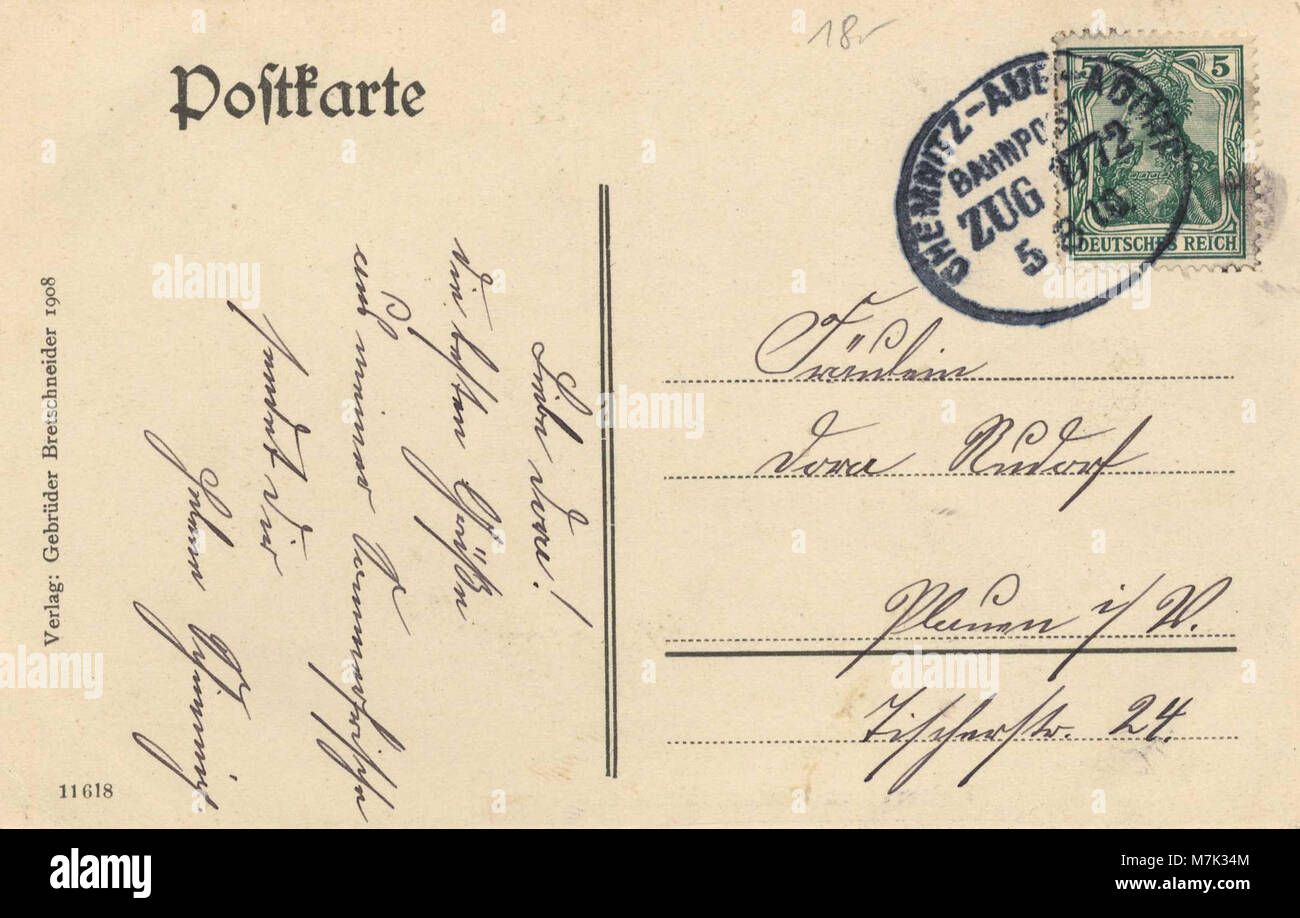 Postkarte
18
CHEMNITZ-AUE-ADORF
BAHNPOST
ZUG 1772
5 8 10
5 5
DEUTSCHES REICH
Fräulein
Dora Rudorf
Plauen i/V.
Tischerstr. 24.
Liebe Dora!
Die besten Grüßen
aus meiner Sommerfrische
sendet Dir
Verlag: Gebrüder Bretschneider 1908
11618
alamy
Image ID: M7K34M
www.alamy.com